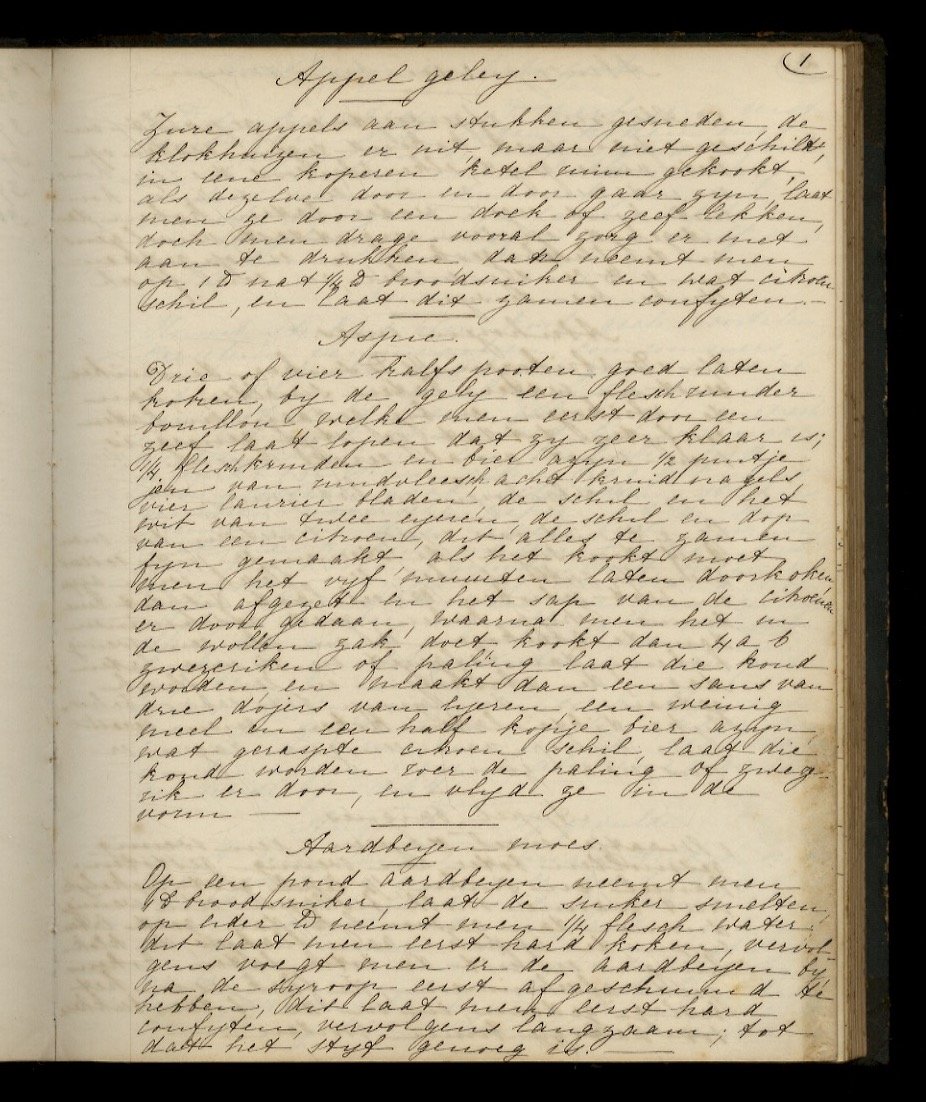 1
Appel geley.
Zure appels aan stukken gesneden, de
klokhuizen er uit, maar niet geschild,
in eene koperen ketel ruim gekookt,
als dezelve door en door gaar zyn, laat
men ze door een doek of zeef lekken,
doch men drage vooral zorg er niet
aan te drukken dan neemt men
op 1 ℔ nat ¼ ℔ broodsuiker en wat citroen
schil, en laat dit zamen confyten.—
Aspic.
Drie of vier kalfspooten goed laten
koken, by de gely een flesch runder
bouillon, welke men eerst door een
zeef laat lopen dat zy zeer klaar is;
¼ flesch en bier azyn ½ pintje
van rundvleesch acht kruidnagels,
vier laurier bladen, de schil en het
wit van twee eyeren, de schil en dop
van een citroen, dit alles te zamen
fyn gemaakt, als het kookt moet
men het vyf minuten laten doorkoken
dan afgezet en het sap van de citroenen
er door gedaan, waarna men het in
de wollen zak doet kookt dan 4 a 6
zwezeriken of paling laat die koud
worden, en maakt dan een saus van
drie dojers van eyeren, een weinig
meel en een half kopje bier azyn,
wat geraspte citroen schil, laat die
koud worden roer de paling of zweze
rik er door, en vlyd ze in de
vorm —
Aardbeyen moes.
Op een pond aardbeyen neemt men
1 ℔ broodsuiker, laat de suiker smelten,
op ieder ℔ neemt men ¼ flesch water:
dit laat men eerst hard koken, vervol-
gens voegt men er de aardbeyen by
na de syroop eerst afgeschuimd te
hebben, dit laat men eerst hard
confyten, vervolgens langzaam; tot
dat het styf genoeg is. —